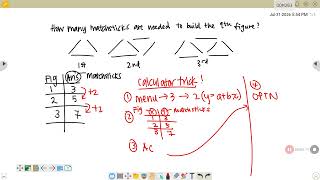 004/063
Jul 31 2024 5:54 PM
How many matchsticks are needed to build the 9th figure?
1st 2nd 3rd
Fig Ans matchsticks
1 3
+2
2 5
+2
3 7
Calculator trick!
① menu → 3 → 2 (y=a+bx)
② Fig matchsticks
1 3
2 5
3 7
③ AC
④
OPTN